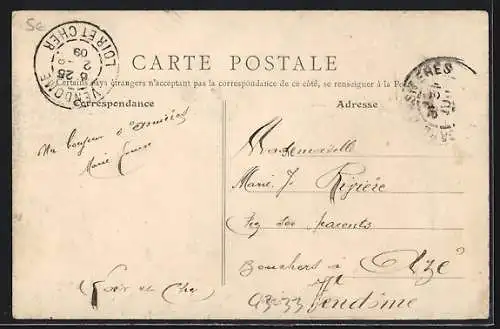 5c
VENDOME
6 25
2 -8
09
LOIR ET CHER
CARTE POSTALE
Certains pays étrangers n'acceptant pas la correspondance de ce côté, se renseigner à la Poste
Correspondance
Adresse
Un bonjour d'
Marie
Mademoiselle
Marie J. Rivière
ses parents
Bouchers à Azé
Vendôme
(Loir et Cher)